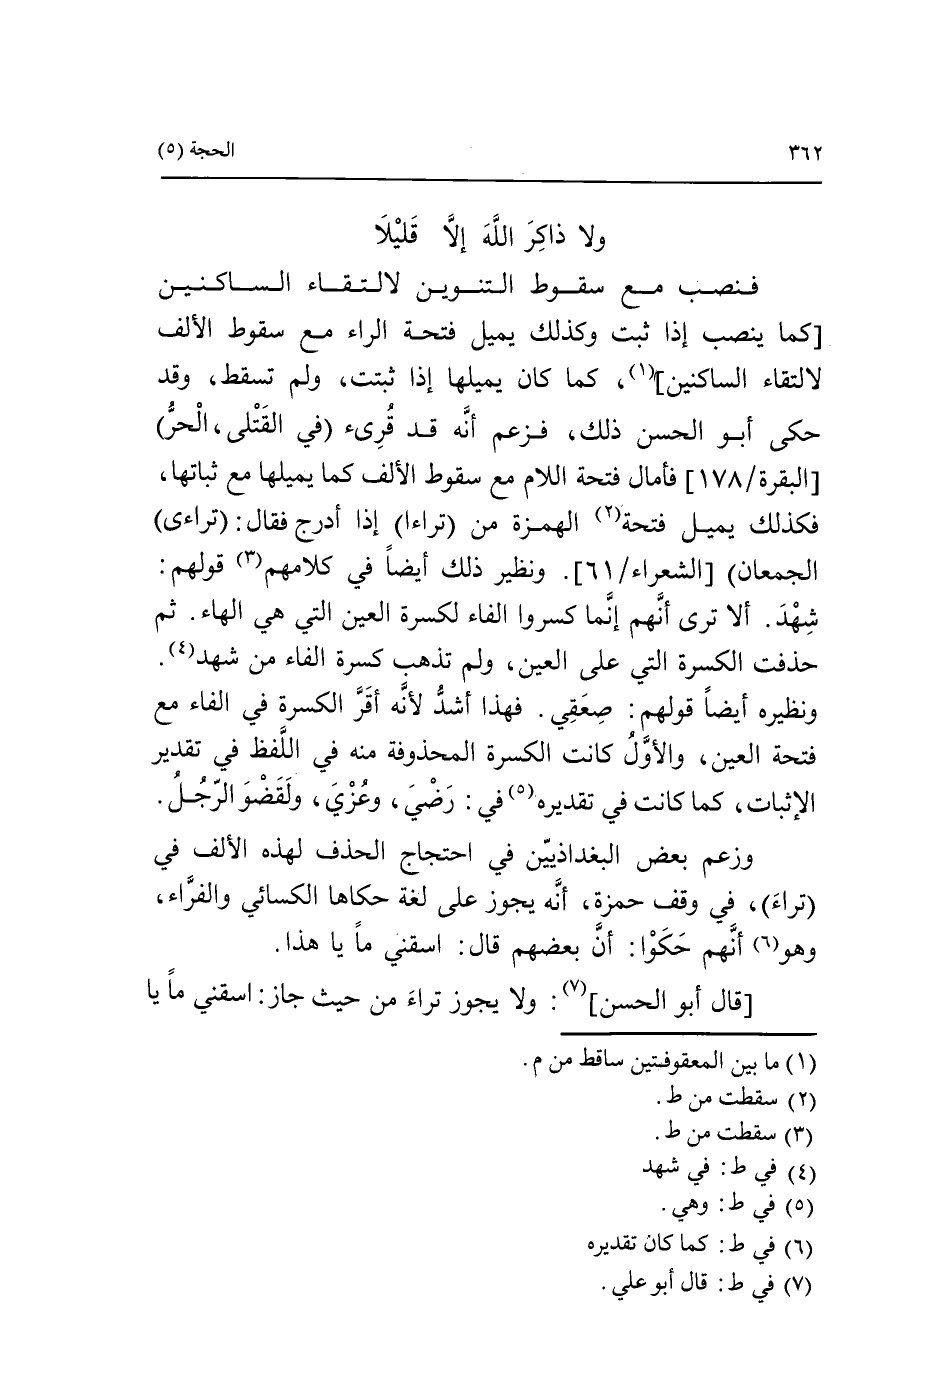 ٣٦٢
الحجة (٥)
ولا ذاكِرَ اللَّهَ إلَّا قَلِيْلَا
فنصب مع سقوط التنوين لالتقاء الساكنين
[كما ينصب إذا ثبت وكذلك يميل فتحة الراء مع سقوط الألف
لالتقاء الساكنين](١)، كما كان يميلها إذا ثبتت، ولم تسقط، وقد
حكى أبو الحسن ذلك، فزعم أنَّه قد قُرِىء (في القَتْلى، الْحرُّ)
[البقرة/١٧٨] فأمال فتحة اللام مع سقوط الألف كما يميلها مع ثباتها،
فكذلك يميل فتحة(٢) الهمزة من (تراءا) إذا أدرج فقال: (تراءى)
الجمعان) [الشعراء/٦١]. ونظير ذلك أيضاً في كلامهم(٣) قولهم:
شِهْدَ. ألا ترى أنَّهم إنَّما كسروا الفاء لكسرة العين التي هي الهاء. ثم
حذفت الكسرة التي على العين، ولم تذهب كسرة الفاء من شهد(٤).
ونظيره أيضاً قولهم: صِعَقِي. فهذا أشدُّ لأنَّه أقَرَّ الكسرة في الفاء مع
فتحة العين، والأوَّلُ كانت الكسرة المحذوفة منه في اللَّفظ في تقدير
الإثبات، كما كانت في تقديره(٥) في: رَضْيَ، وغُزْيَ، ولَقَضْوَ الرّجُلُ.
وزعم بعض البغداذيّين في احتجاج الحذف لهذه الألف في
(تراءَ)، في وقف حمزة، أنَّه يجوز على لغة حكاها الكسائي والفرَّاء،
وهو(٦) أنَّهم حَكَوْا: أنَّ بعضهم قال: اسقني ماً يا هذا.
[قال أبو الحسن](٧): ولا يجوز تراءَ من حيث جاز: اسقني ماً يا
(١) ما بين المعقوفتين ساقط من م.
(٢) سقطت من ط.
(٣) سقطت من ط.
(٤) في ط: في شهد
(٥) في ط: وهي.
(٦) في ط: كما كان تقديره
(٧) في ط: قال أبو علي.